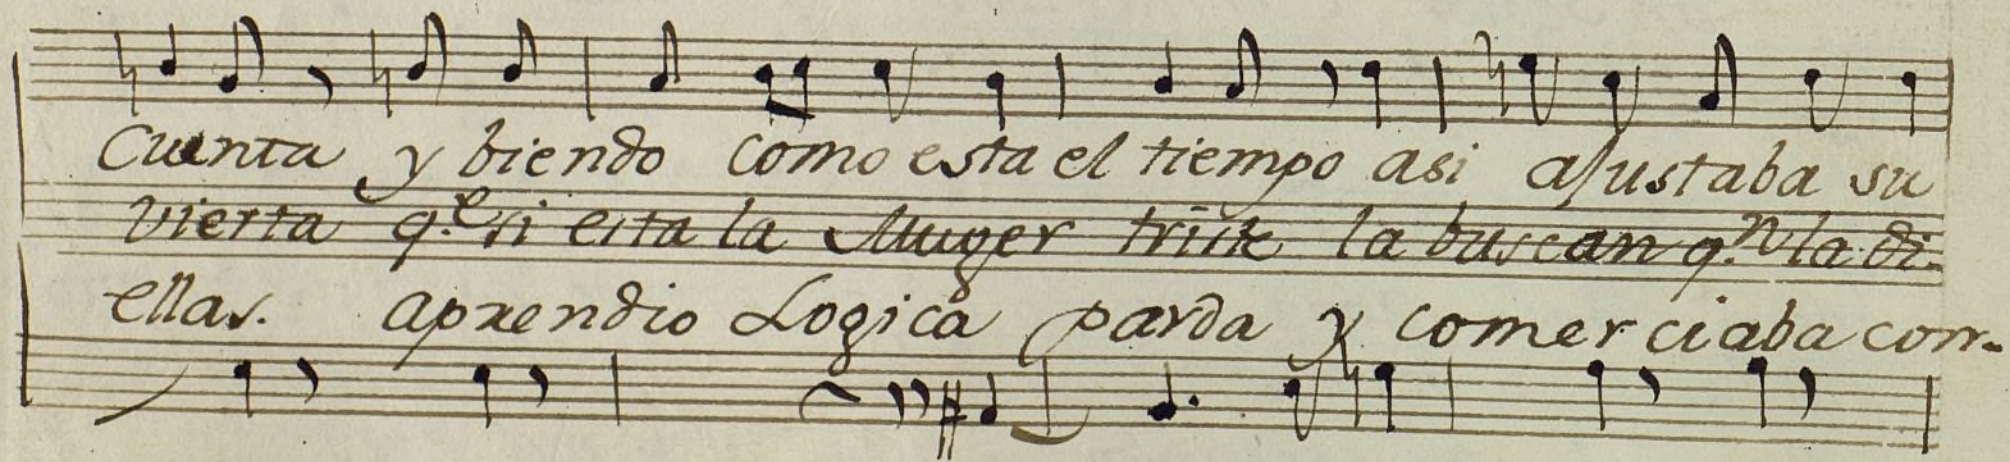 Cuenta y biendo como esta el tiempo asi ajustaba su
vierta q.e si esta la Muger triste la buscan q.n la di-
ellas. aprendio Logica parda y comerciaba con-